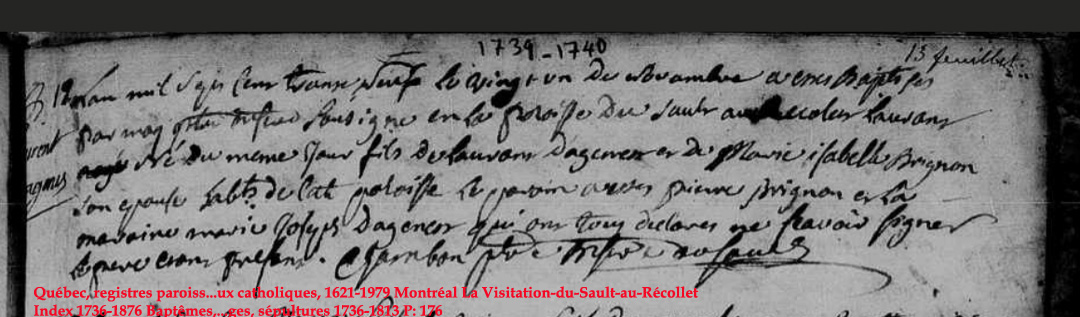 1739-1740
13 feuillet
B. 12 Lan mil sept cent trante neuf le vingt un de novambre a etes baptises
par moy ptre missionaire sousigne en la paroisse du sault au Recolet laurans
né du meme jour fils de laurans dagenez et de Marie isabelle Brignon
son epouse habts de cete paroisse le parain a etes pierre Brignon et la
maraine marie Joseph dagenez qui ont tous declares ne scavoir signer
le pere etant present. Chambon ptre du Sault
Québec, registres paroiss...ux catholiques, 1621-1979 Montréal La Visitation-du-Sault-au-Récollet
Index 1736-1876 Baptêmes,...ges, sépultures 1736-1813 P: 176